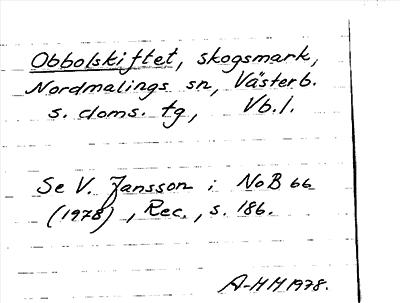 Obbolskiftet, skogsmark,
Nordmalings sn, Västerb.
s. doms. tg, Vb.l.
Se V. Jansson i NoB 66
(1978), Rec., s. 186.
A-HH 1978.